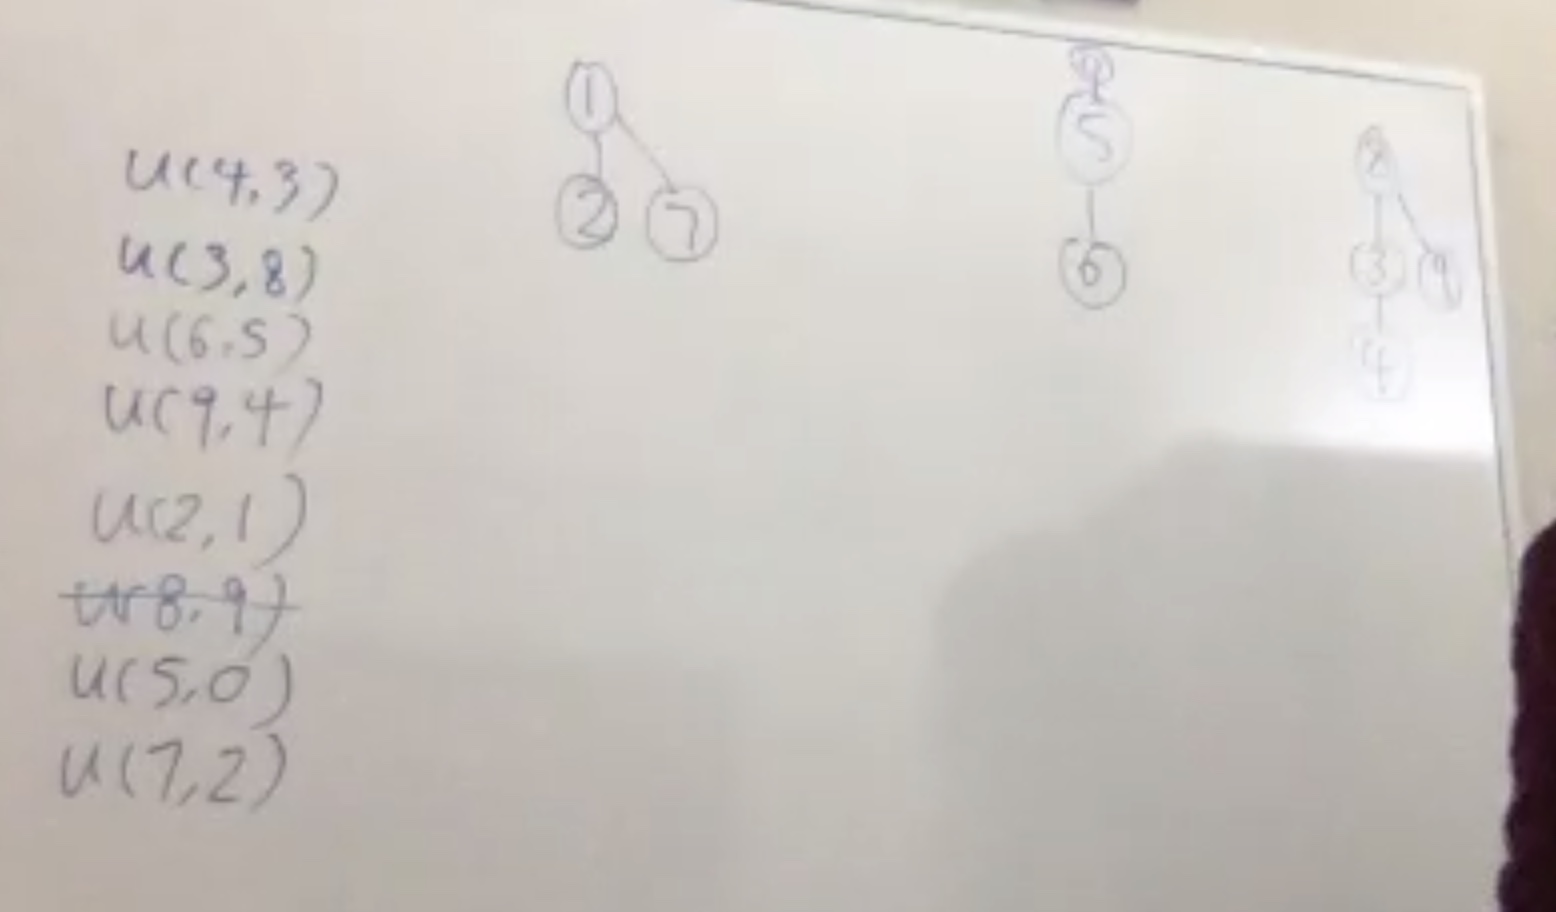 u(4,3)
u(3,8)
u(6,5)
u(9,4)
u(2,1)
u(8,9)
u(5,0)
u(7,2)
1
2 7
0
5
6
8
3 9
4